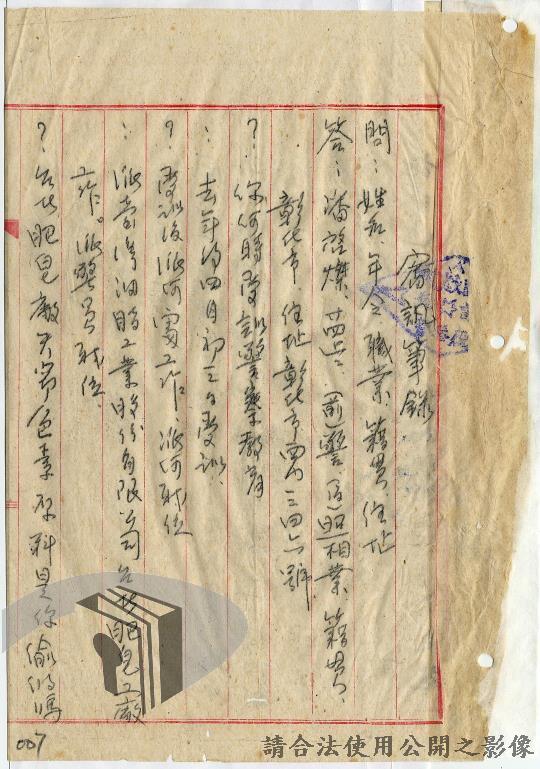 審訊筆錄
問：姓名、年令、職業、籍貫、住址
答：潘啓燦、廿四歲、前警員照相業、籍貫、
彰化市、住址彰化市西門三四六號
？你何時受訓警察教育
：去年的四月初三日受訓、
？受訓後派何處工作、派何職位
：派台灣油脂工業股份有限公司台北肥皂工廠
工作。派警員職位、
？台北肥皂廠 色素原料是你偷的嗎
007
請合法使用公開之影像